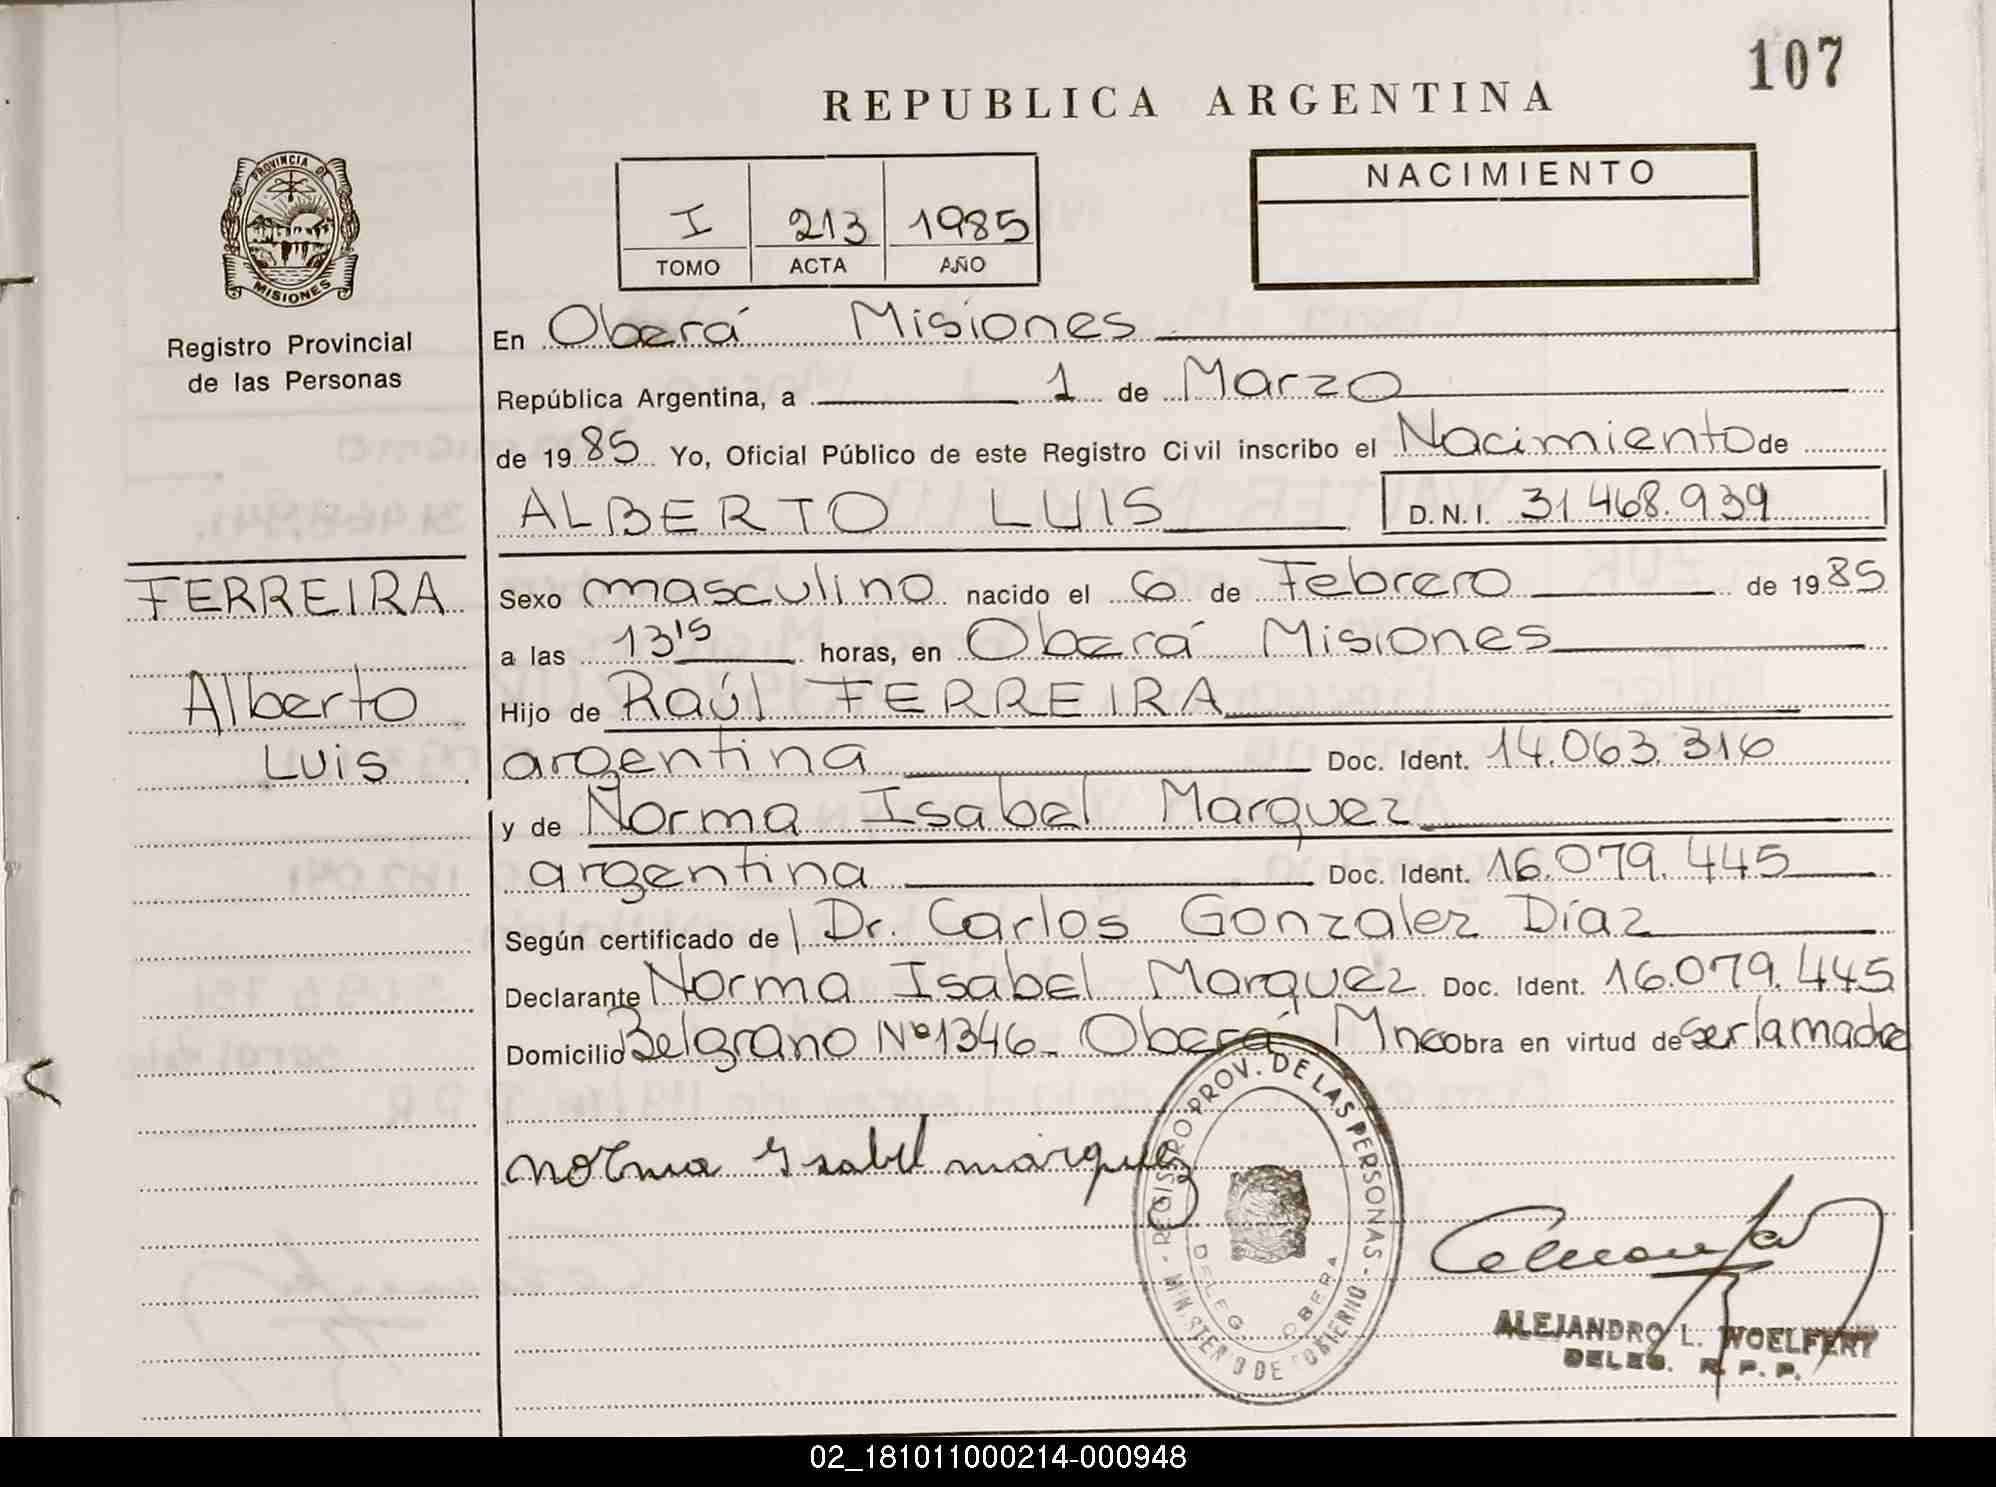 107
REPUBLICA ARGENTINA
PROVINCIA DE
MISIONES
Registro Provincial
de las Personas
I 213 1985
TOMO ACTA AÑO
NACIMIENTO
En Oberá Misiones
República Argentina, a 1 de Marzo
de 1985 Yo, Oficial Público de este Registro Civil inscribo el Nacimiento de
ALBERTO LUIS D.N.I. 31.468.939
FERREIRA
Alberto
Luis
Sexo masculino nacido el 6 de Febrero de 1985
a las 13'15 horas, en Oberá Misiones
Hijo de Raúl FERREIRA
argentina Doc. Ident. 14.063.316
y de Norma Isabel Marquez
argentina Doc. Ident. 16.079.445
Según certificado de Dr. Carlos Gonzalez Díaz
Declarante Norma Isabel Marquez Doc. Ident. 16.079.445
Domicilio Belgrano Nº 1346 - Oberá Mnes obra en virtud de ser la madre
norma Isabel marquez
REGISTRO PROV. DE LAS PERSONAS - MINISTERIO DE GOBIERNO -
DELEG. OBERA
ALEJANDRO L. WOELFERT
DELEG. R. P. P.
02_181011000214-000948